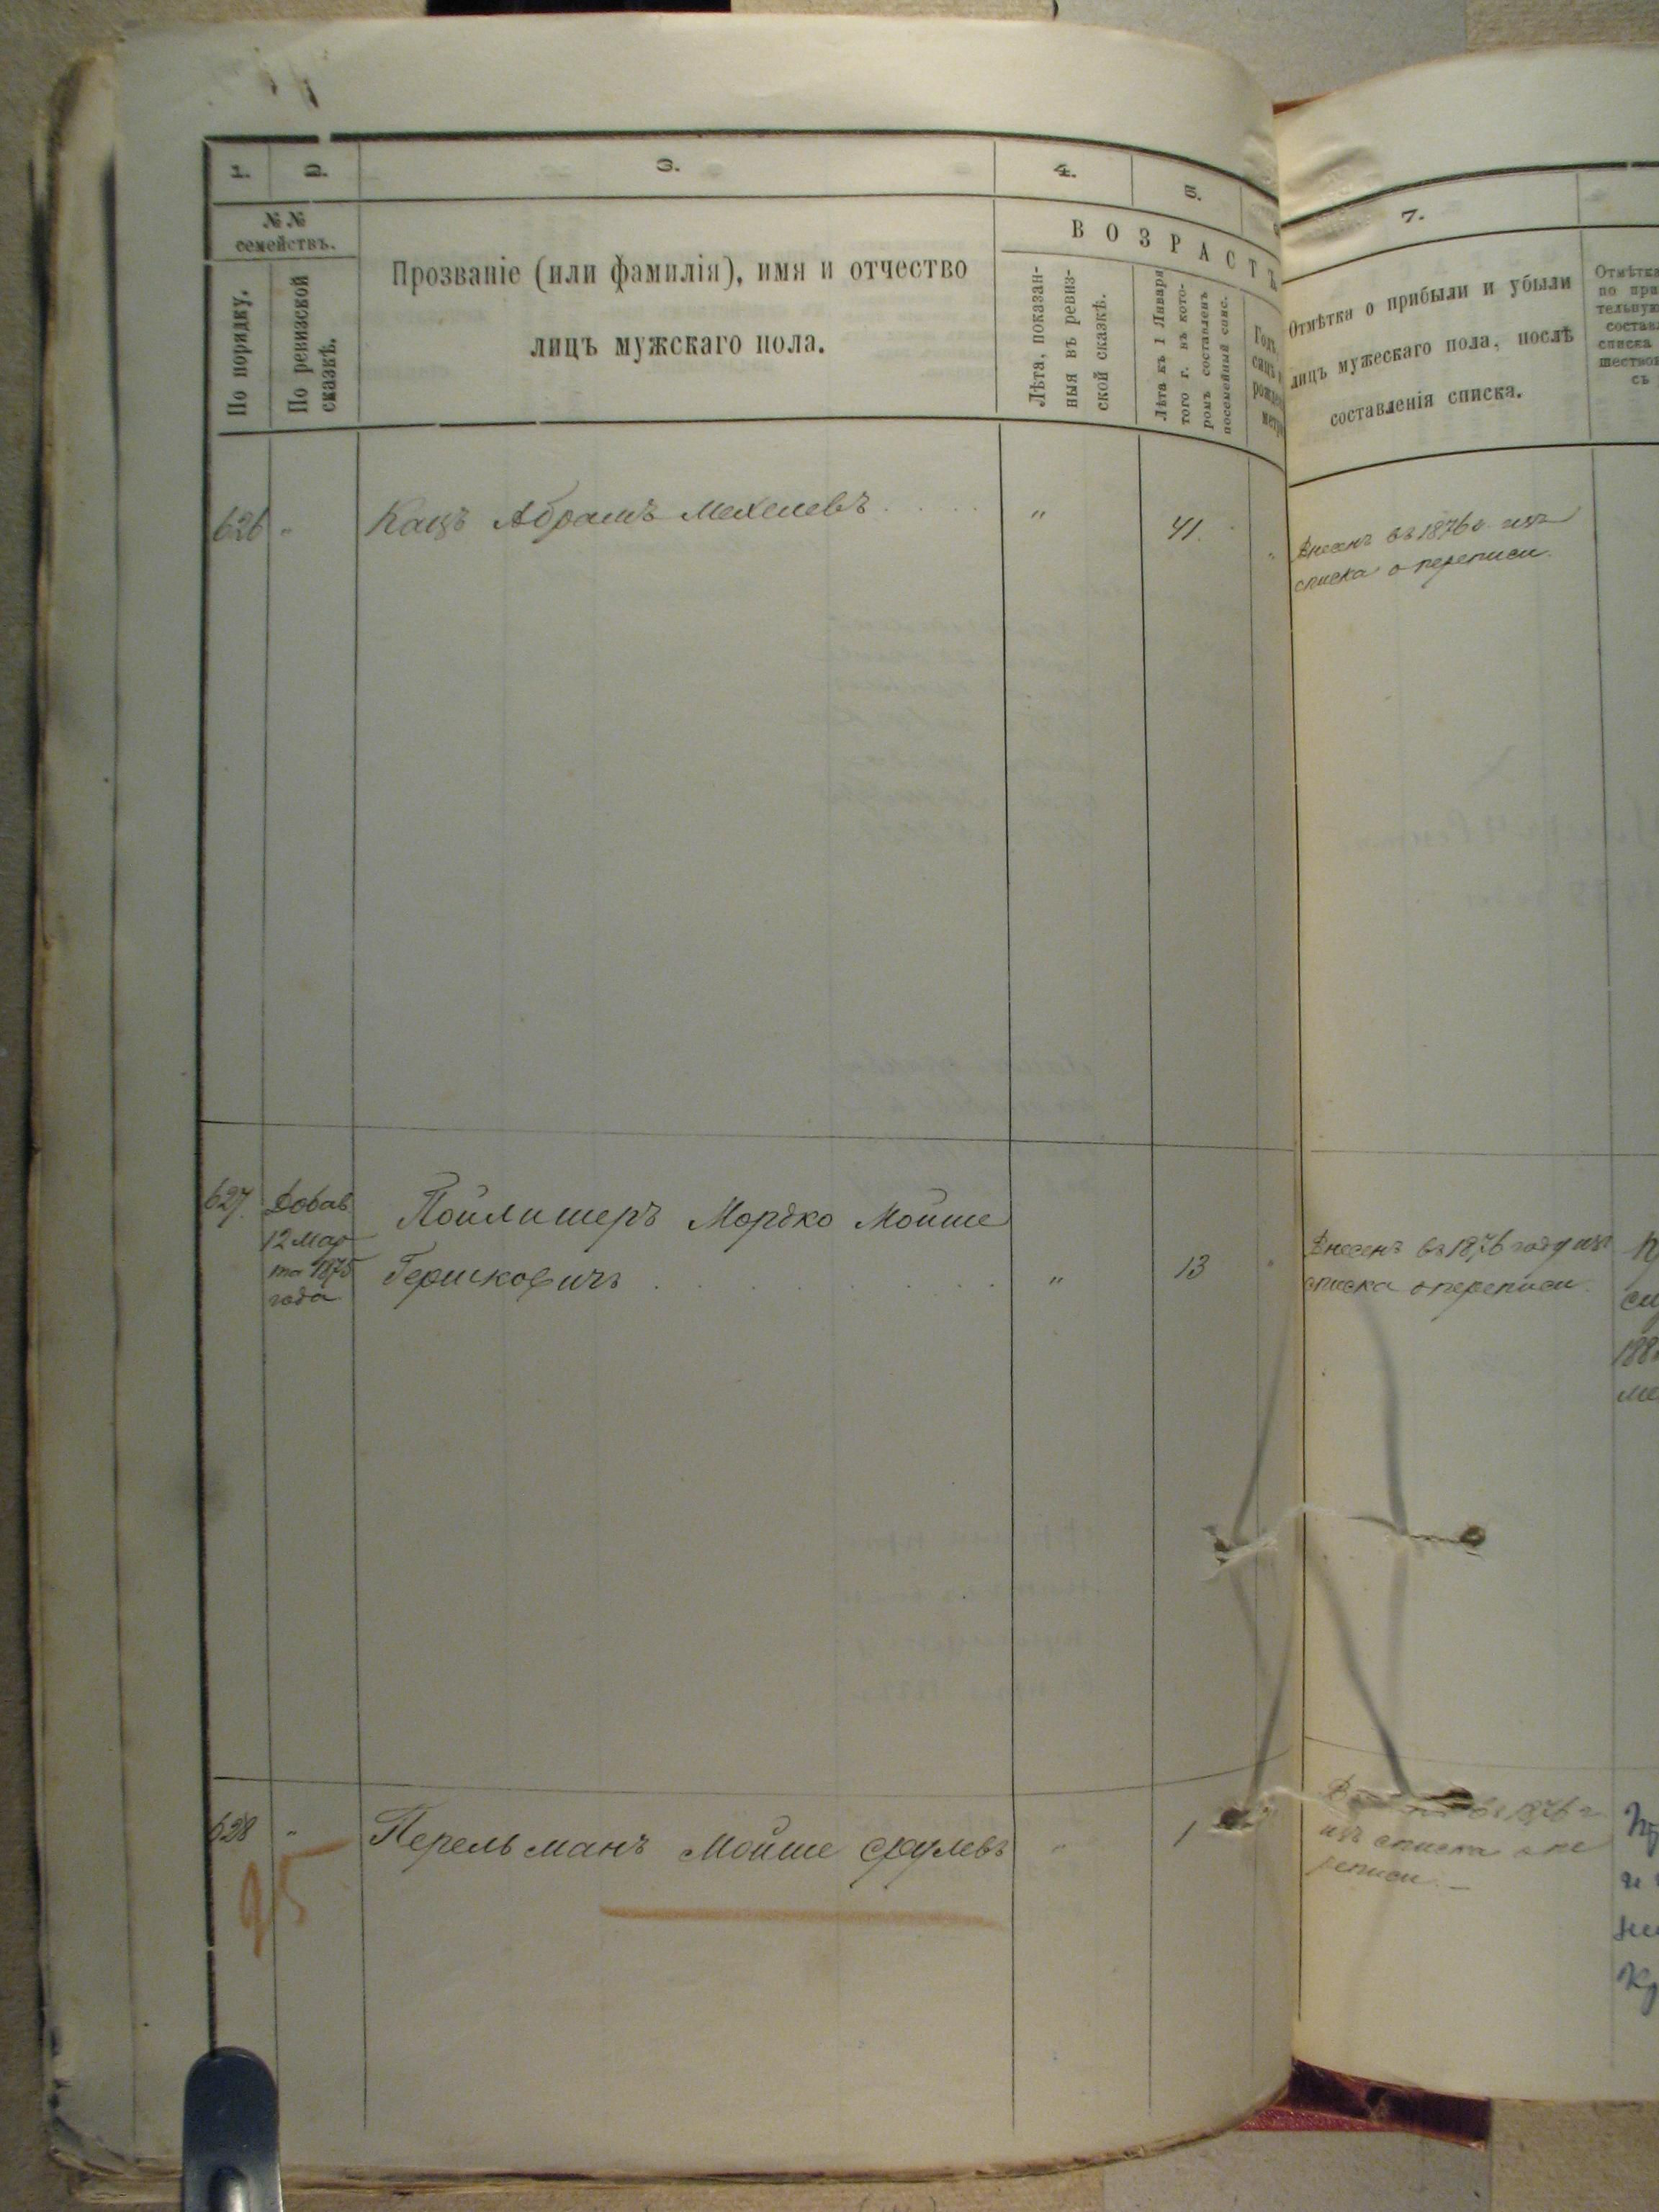 1.
2.
3.
4.
5.
7.
№ №
семействъ.
По порядку.
По ревизской
сказкѣ.
Прозваніе (или фамилія), имя и отчество
лицъ мужскаго пола.
ВОЗРАСТЪ
Лѣта, показан-
ныя въ ревиз-
ской сказкѣ.
Лѣта къ 1 Января
того г. въ кото-
ромъ составленъ
посемейный спис.
Отмѣтка о прибыли и убыли
лицъ мужескаго пола, послѣ
составленія списка.
626 "
Кацъ Абрамъ Мехелевъ
"
41.
Внесенъ въ 1876 г. изъ
списка о переписи.
627.
Добав.
12 мар
та 1875
года
Пойлишеръ Мордко Мойше
Гершковичъ
"
13
Внесенъ въ 1876 году изъ
списка о переписи.
628 "
Перельманъ Мойше Срулевъ
"
1
въ 1876 г
изъ списка о пе
реписи.
95